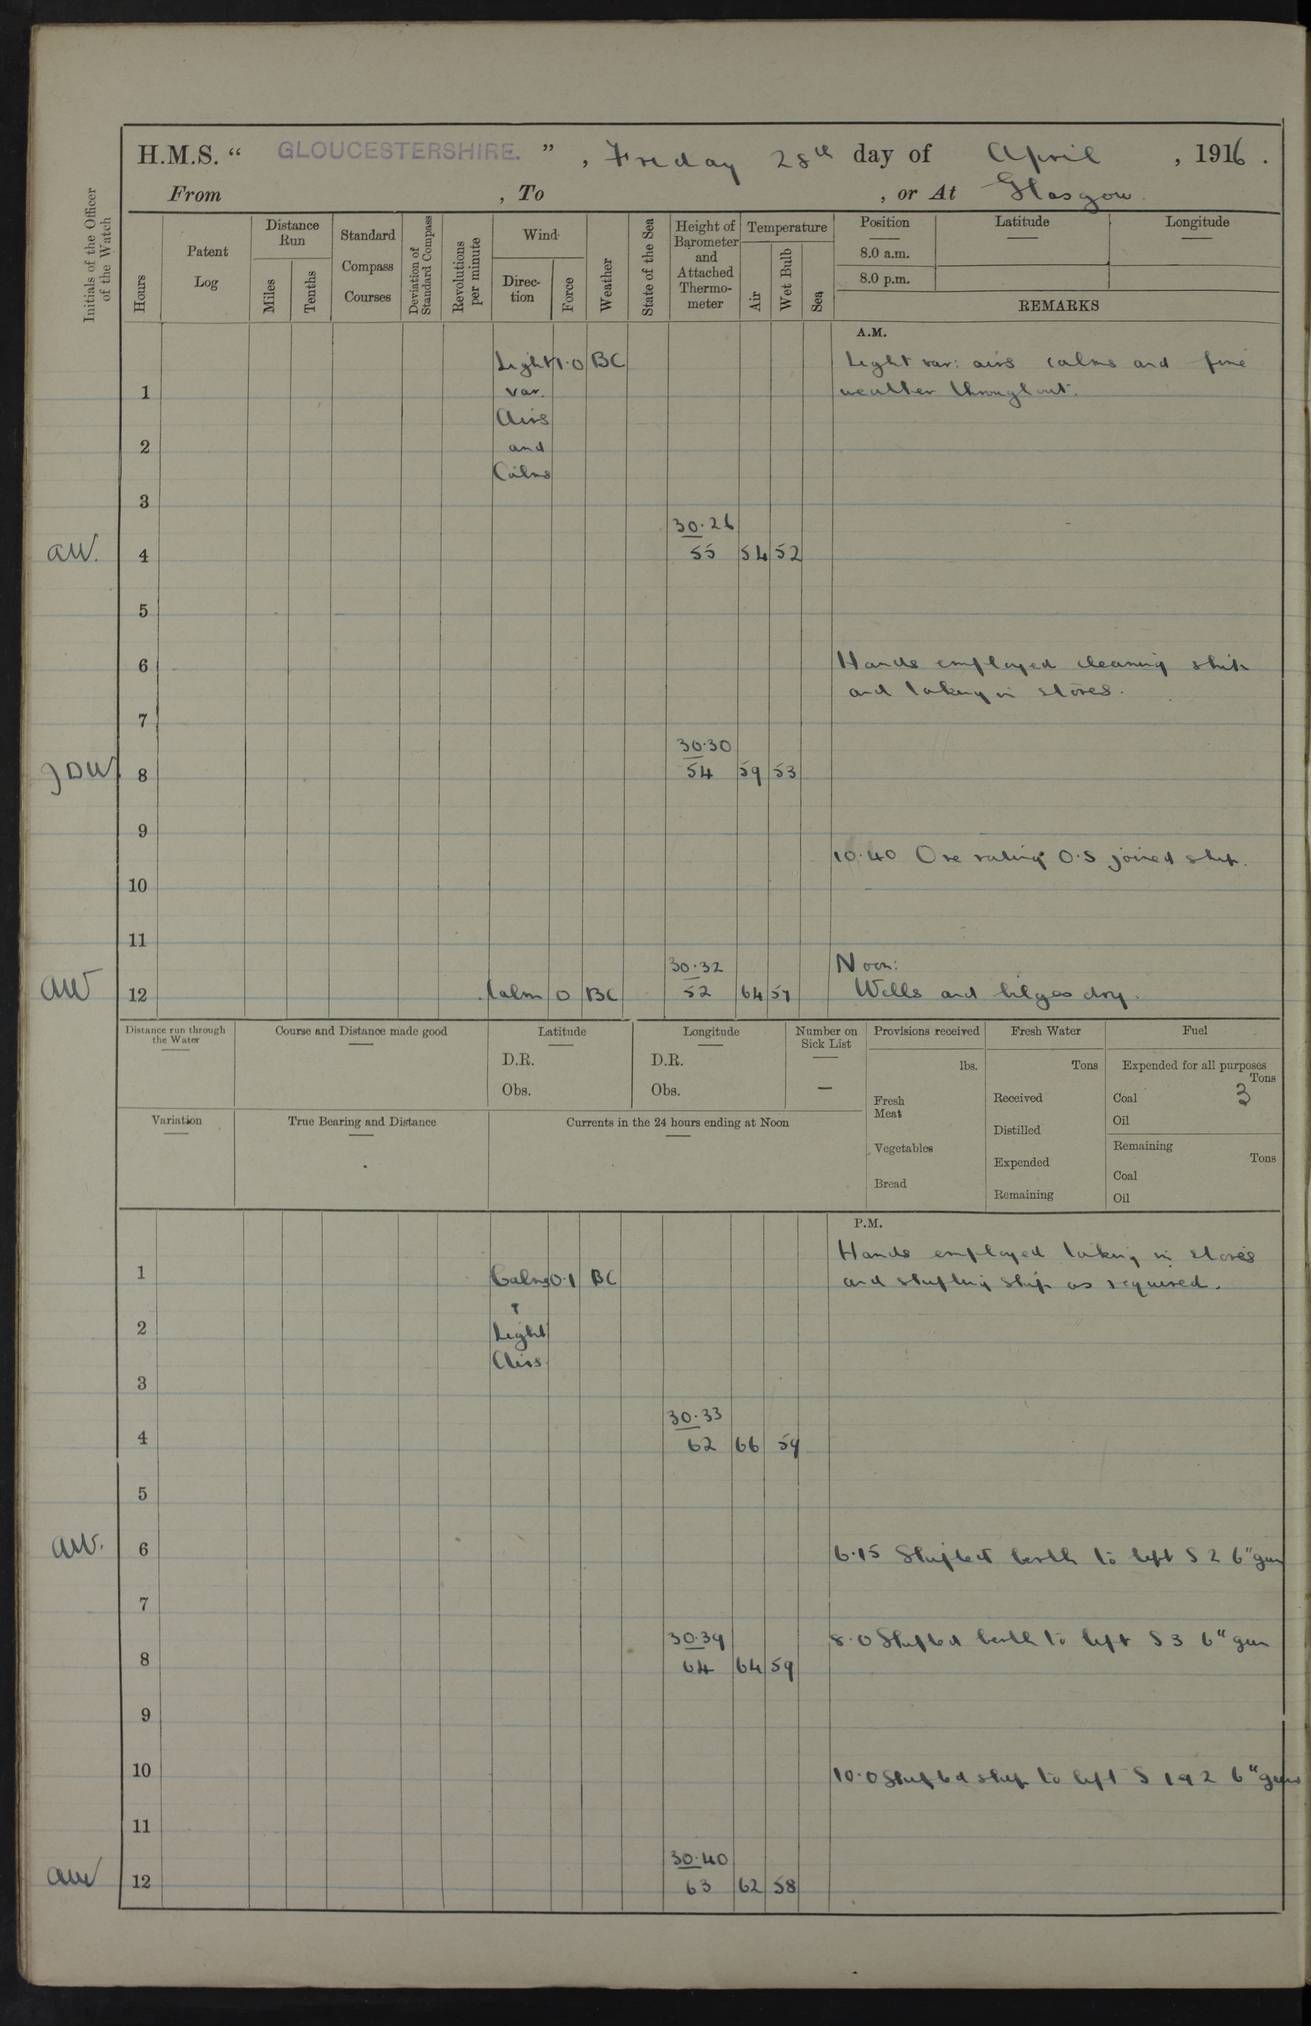 H.M.S. “ GLOUCESTERSHIRE. ” , Friday 28th day of April , 1916 .
From , To , or At Glasgow
Initials of the Officer of the Watch
Hours
Patent Log
Distance Run
Miles
Tenths
Standard Compass Courses
Deviation of Standard Compass
Revolutions per minute
Wind
Direc-tion
Force
Weather
State of the Sea
Height of Barometer and Attached Thermo-meter
Temperature
Air
Wet Bulb
Sea
Position
Latitude
Longitude
8.0 a.m.
8.0 p.m.
REMARKS
A.M.
Light 1·0 BC Light var: airs calms and fine
1 var. weather throughout.
Airs
2 and
Calms
3
30·26
AW. 4 55 54 52
5
6 Hands employed cleaning ship
and taking in stores.
7
30·30
JDW 8 54 59 53
9
10·40 One rating O.S joined ship.
10
11
30·32 Noon:
AW 12 Calm 0 BC 52 64 57 Wells and bilges dry.
Distance run through the Water
Course and Distance made good
Latitude
D.R.
Obs.
Longitude
D.R.
Obs.
Number on Sick List
—
Provisions received
lbs.
Fresh Meat
Vegetables
Bread
Fresh Water
Tons
Received
Distilled
Expended
Remaining
Fuel
Expended for all purposes
Tons
Coal 3
Oil
Remaining
Tons
Coal
Oil
Variation
True Bearing and Distance
Currents in the 24 hours ending at Noon
P.M.
Hands employed taking in stores
1 Calms 0·1 BC and shifting ship as required.
2 Light
Airs
3
30·33
4 62 66 59
5
AW. 6 6·15 Shifted berth to left S 2 6" gun
7
30·39 8·0 Shifted berth to left S 3 6" gun
8 64 64 59
9
10 10·0 Shifted ship to left S 1 & 2 6" guns
11
30·40
AW 12 63 62 58